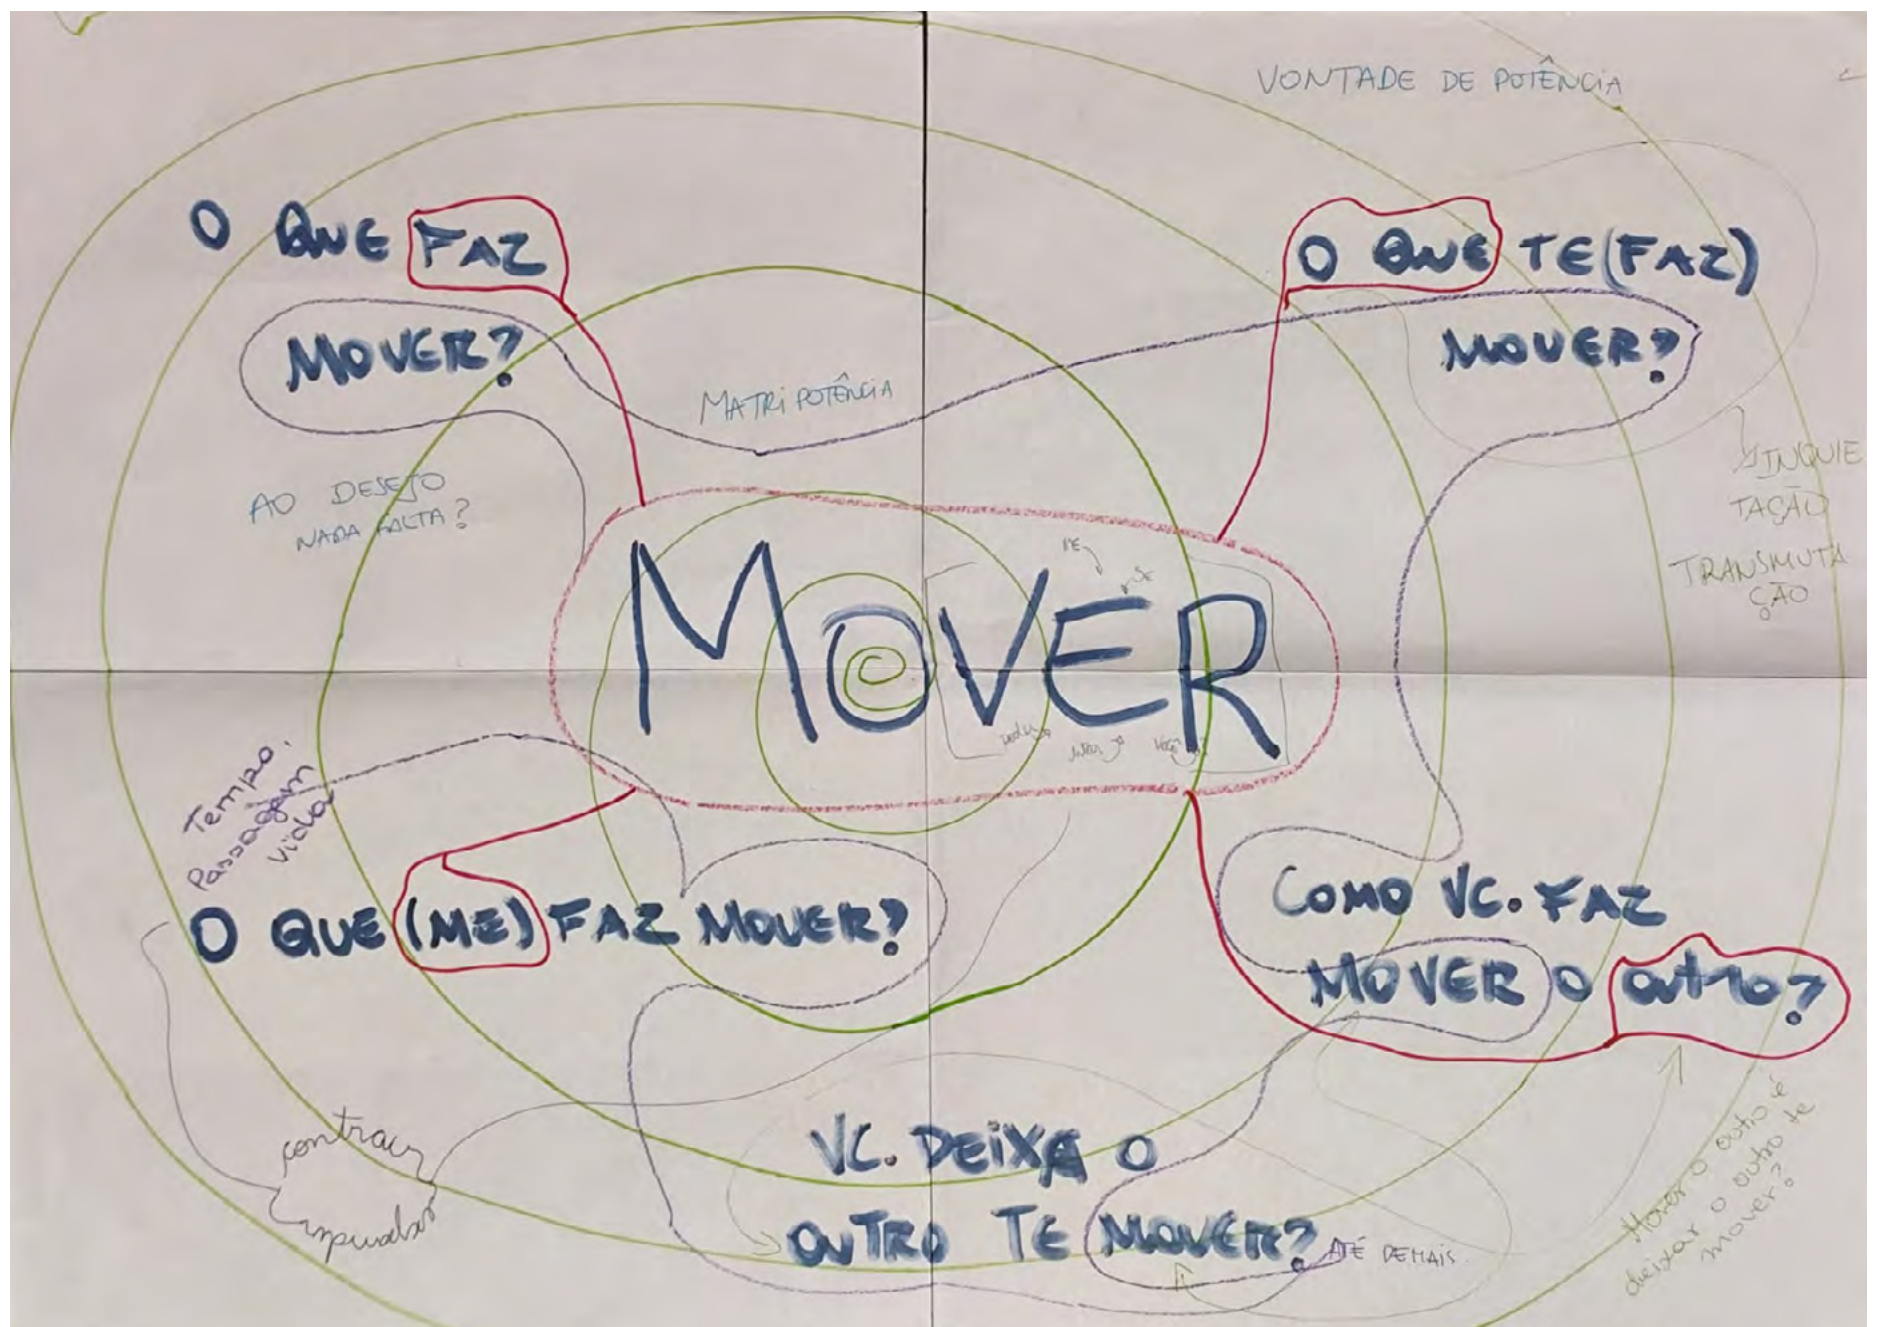 VONTADE DE POTÊNCIA
O QUE FAZ
MOVER?
O QUE TE (FAZ)
MOVER?
MATRIPOTÊNCIA
AO DESEJO
NADA FALTA?
INQUIE
TAÇÃO
TRANSMUTA
ÇÃO
ME
SE
MOVER
Tempo.
Passagem
vida
O QUE (ME) FAZ MOVER?
COMO VC. FAZ
MOVER O outro?
contrair
expandir
VC. DEIXA O
OUTRO TE MOVER?
ATÉ DEMAIS
Mover o outro é
deixar o outro te
mover?